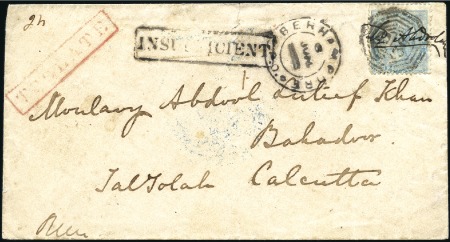 TOO LATE
INSUFFICIENT
BERHAMPORE
Moulavy Abdool Luteef Khan
Bahadoor
Taltolah Calcutta